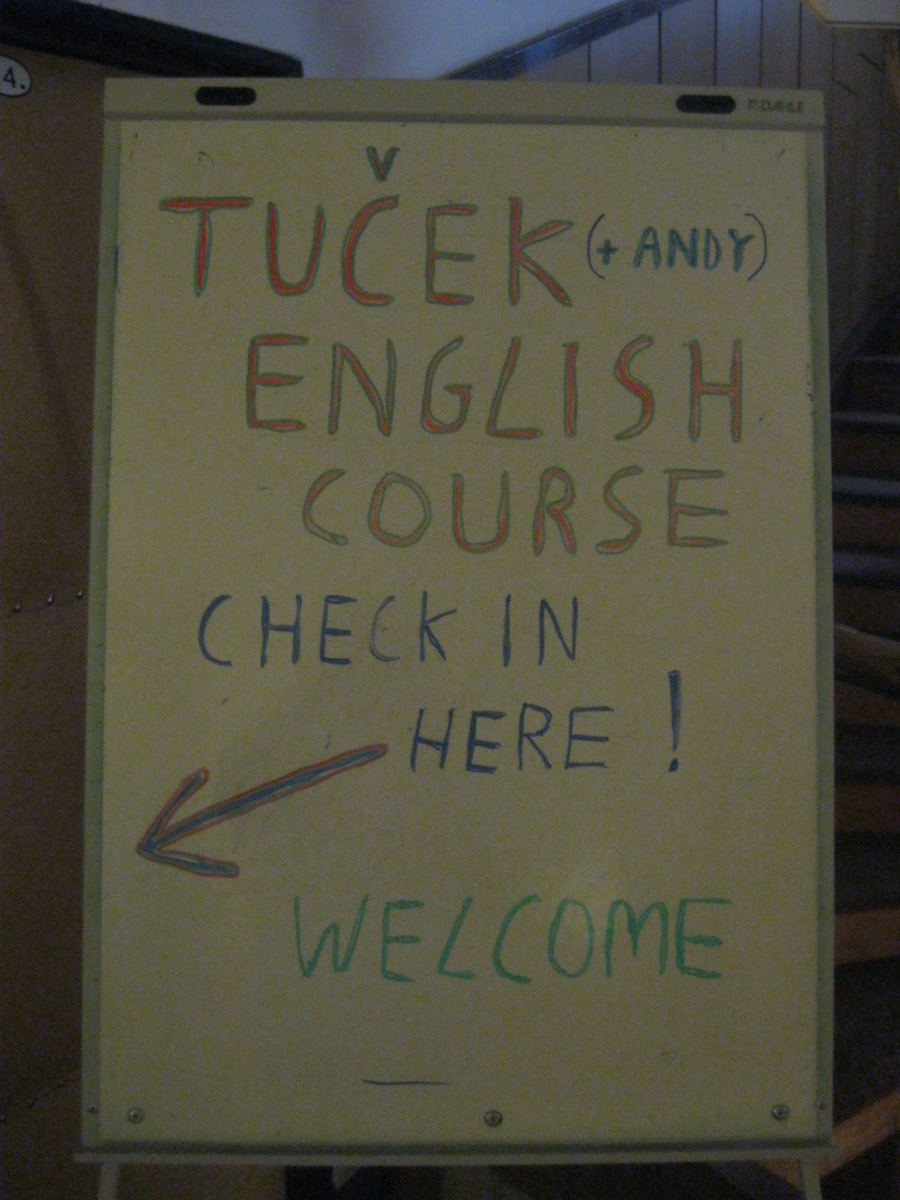 4.
DAHLE
TUČEK (+ ANDY)
ENGLISH
COURSE
CHECK IN
HERE !
WELCOME